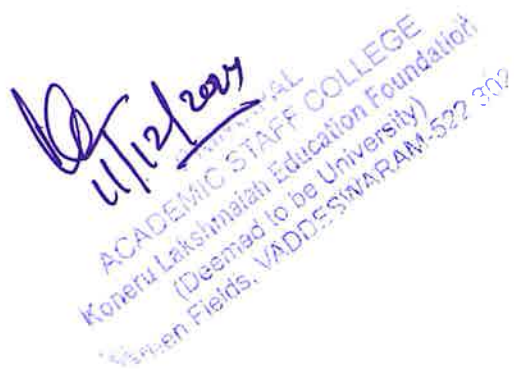 11/12/2024
PRINCIPAL
ACADEMIC STAFF COLLEGE
Koneru Lakshmaiah Education Foundation
(Deemed to be University)
Green Fields, VADDESWARAM-522 302